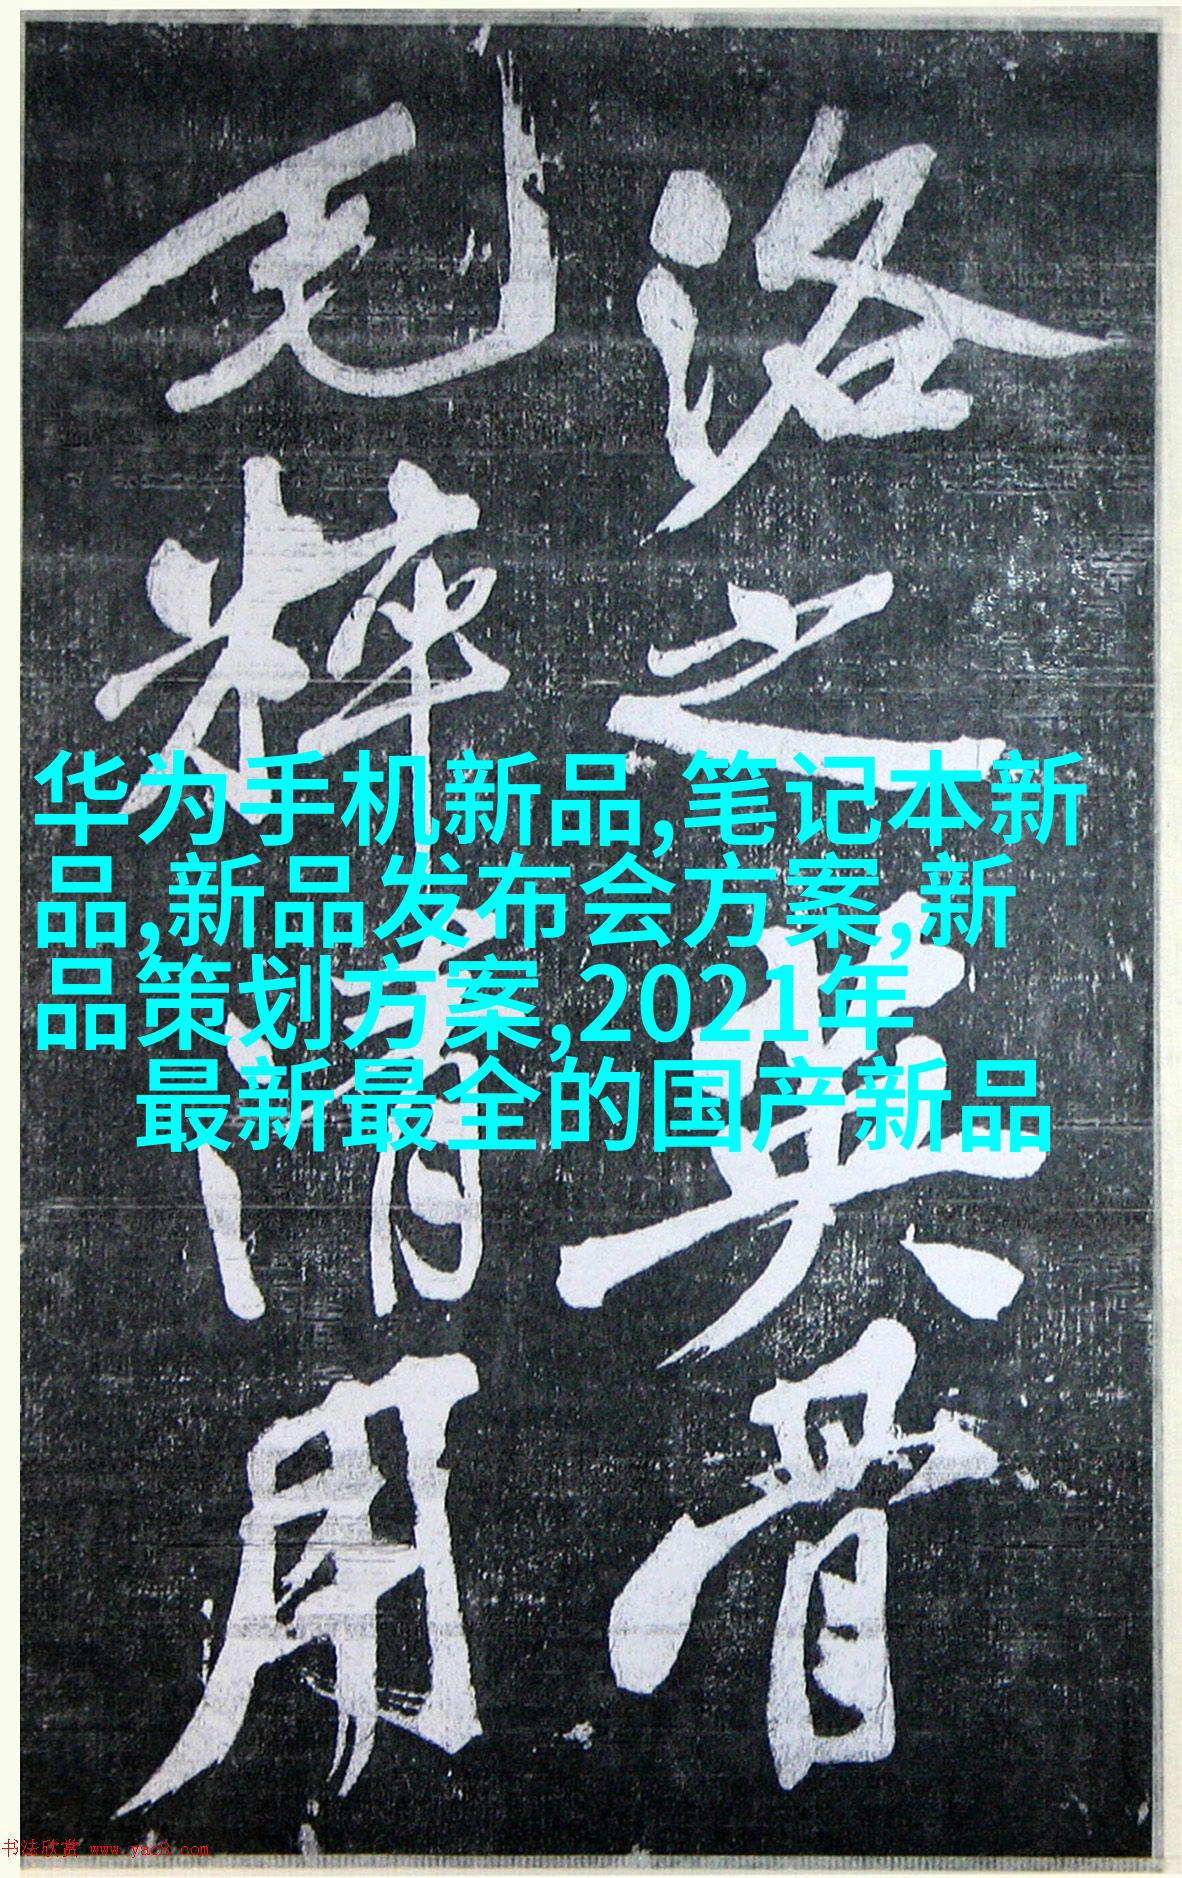 洛之英骨
毛粹清用
华为手机新品,笔记本新
品,新品发布会方案,新
品策划方案,2021年
最新最全的国产新品
书法欣赏 www.yac8.com